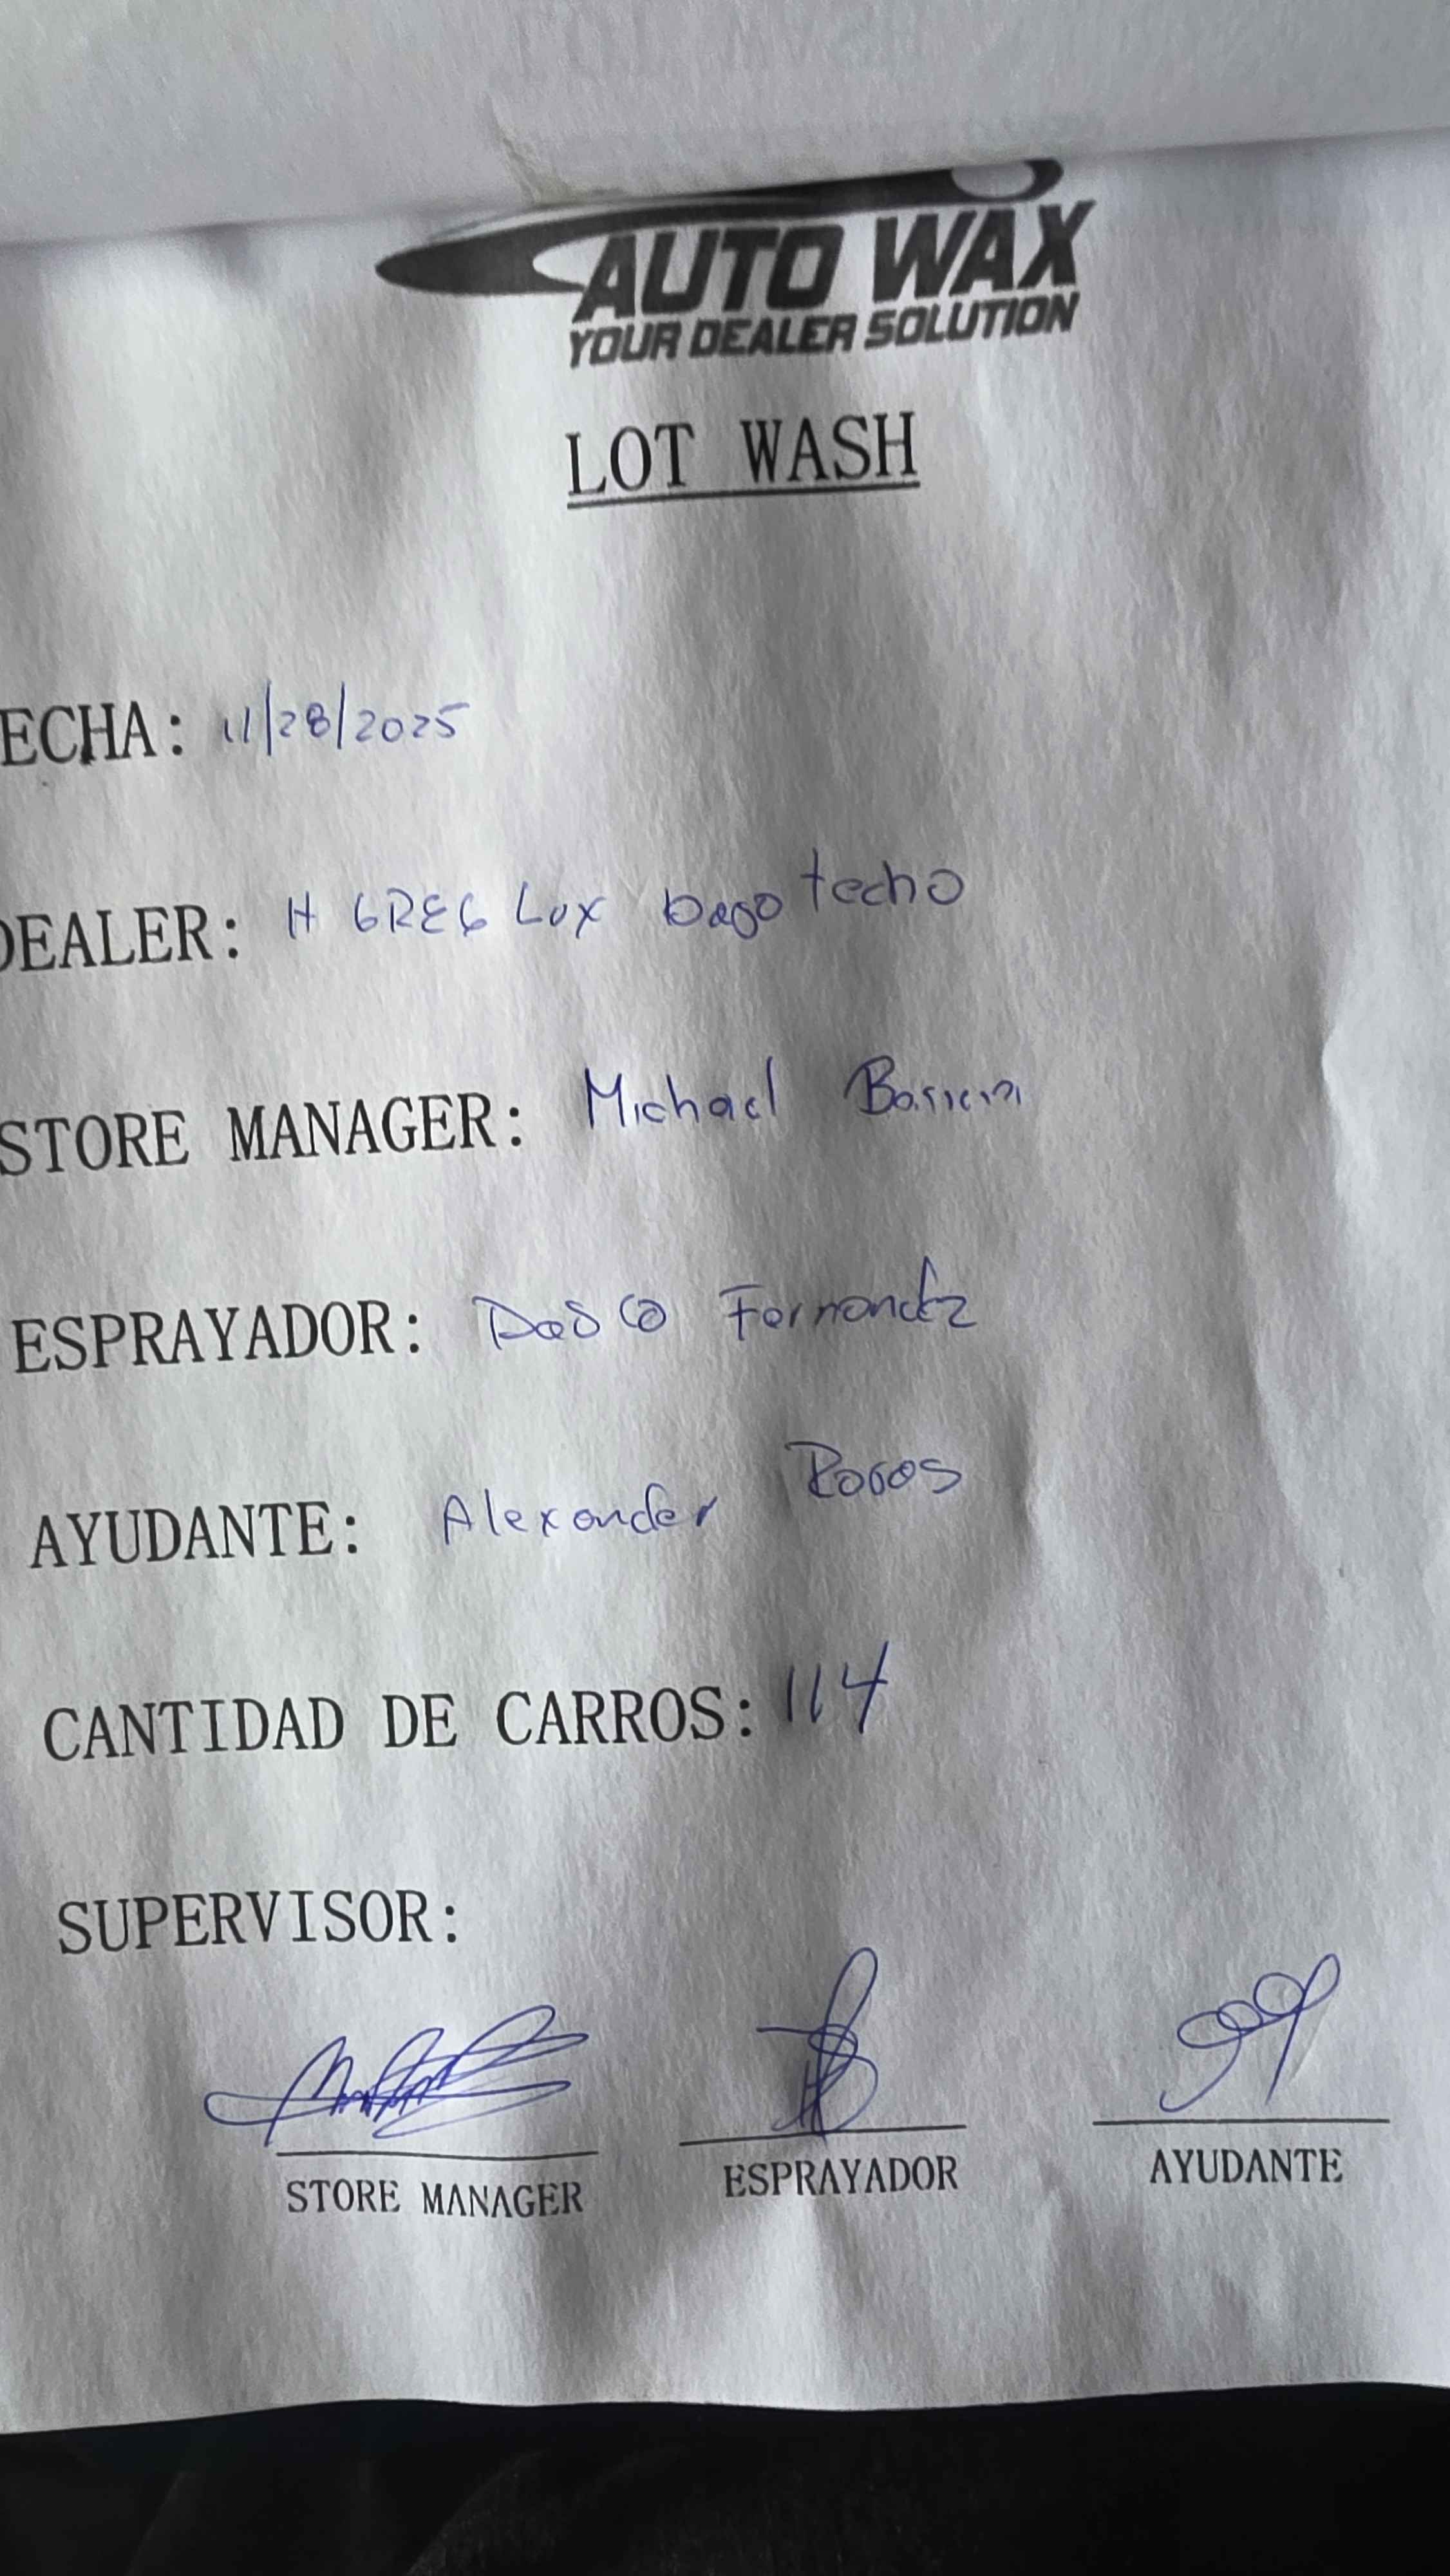 AUTO WAX
YOUR DEALER SOLUTION
LOT WASH
ECHA: 11/28/2025
DEALER: H GREG Lux bago techo
STORE MANAGER: Michael
ESPRAYADOR: Fernandz
AYUDANTE: Alexander
CANTIDAD DE CARROS: 114
SUPERVISOR:
STORE MANAGER ESPRAYADOR AYUDANTE